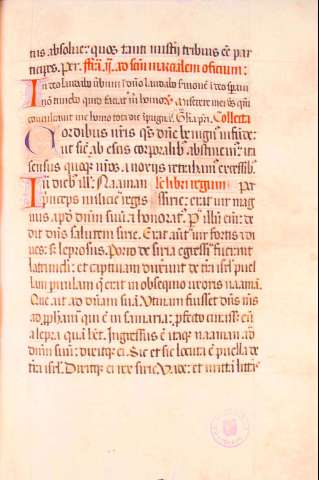 tus absolue: quos tanti mistерij tribuis eē par
ticipes. Per. Fẽa .ij. ad scm̄ marcalem officium:
In deo laudabo ūbum ī dño laudabo s̄monē ī deo spaui
nō timebo quid faciat m̄ homo. Miserere mei ds qm̄
conculcauit me homo tota die īpugnās. Gl̄a pr̄i. Collecta
Cordibus nr̄is qs dñe benignus īfūde:
ut sic ab escis corporalib abstineam: ita
sensus quoq nr̄os a noxijs retraham excessib.
In dieb ill: Naaman le libri regum Per
princeps milicie regis sirie: erat uir mag
nus apd dñm suū: ⁊ honorat. Per illū eni: de
dit dñs salutem sirie. Erat aut uir fortis ⁊ di
ues: s leprosus. Porro de siria egressi fuerant
latrunculi: et captiuam duxerunt de tra isrl puel
lam paruulam q erat in obsequio uxoris naamā.
Que ait ad dñam suā: Utinam fuisset dñs ms
ad pphetam qui ē in samaria: pfecto curass eū
a lepra quā het. Ingressus ē itaq naaman ad
dñm suū: dixitq ei. Sic et sic locuta ē puella de
tra isrl. Dixitq ei rex sirie. Uade: et mittā litte